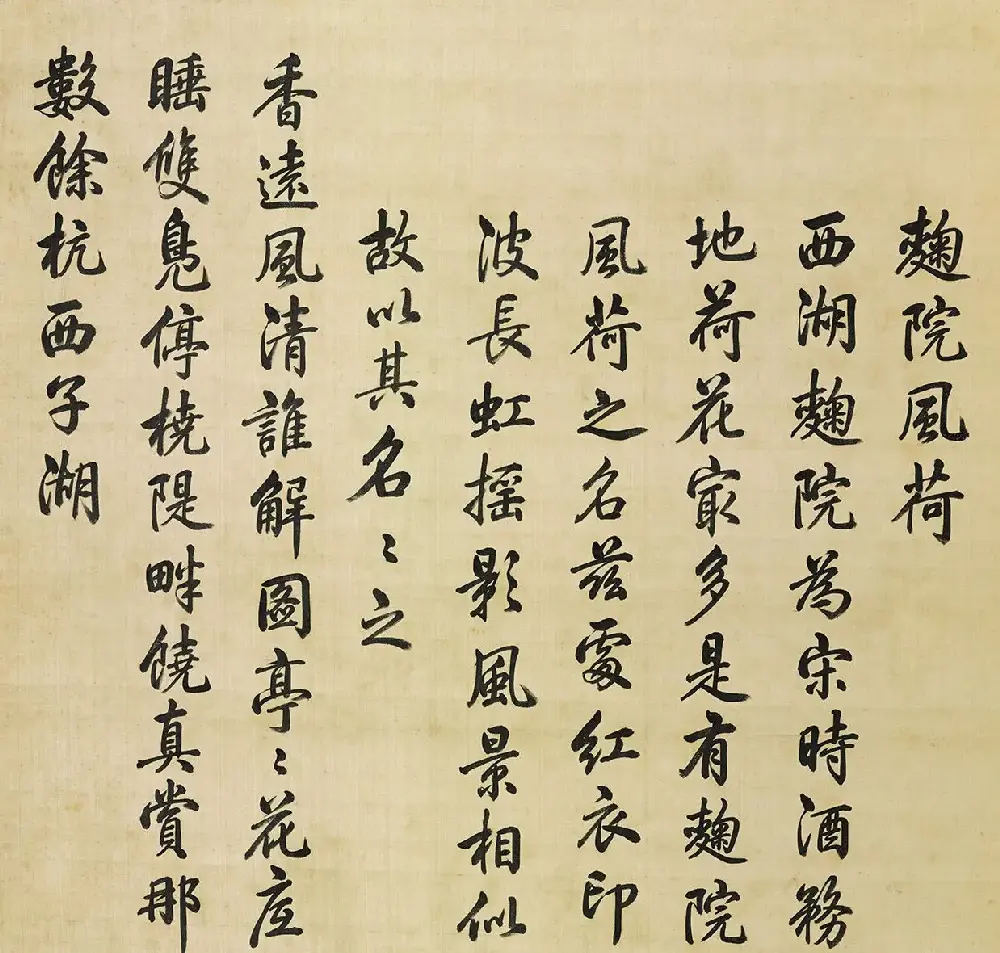 麯院風荷
西湖麯院為宋時酒務
地荷花寂多是有麯院
風荷之名茲處紅衣印
波長虹搖影風景相似
故以其名〻之
香遠風清誰解圖亭〻花底
睡雙鳧停橈隄畔饒真賞那
數餘杭西子湖